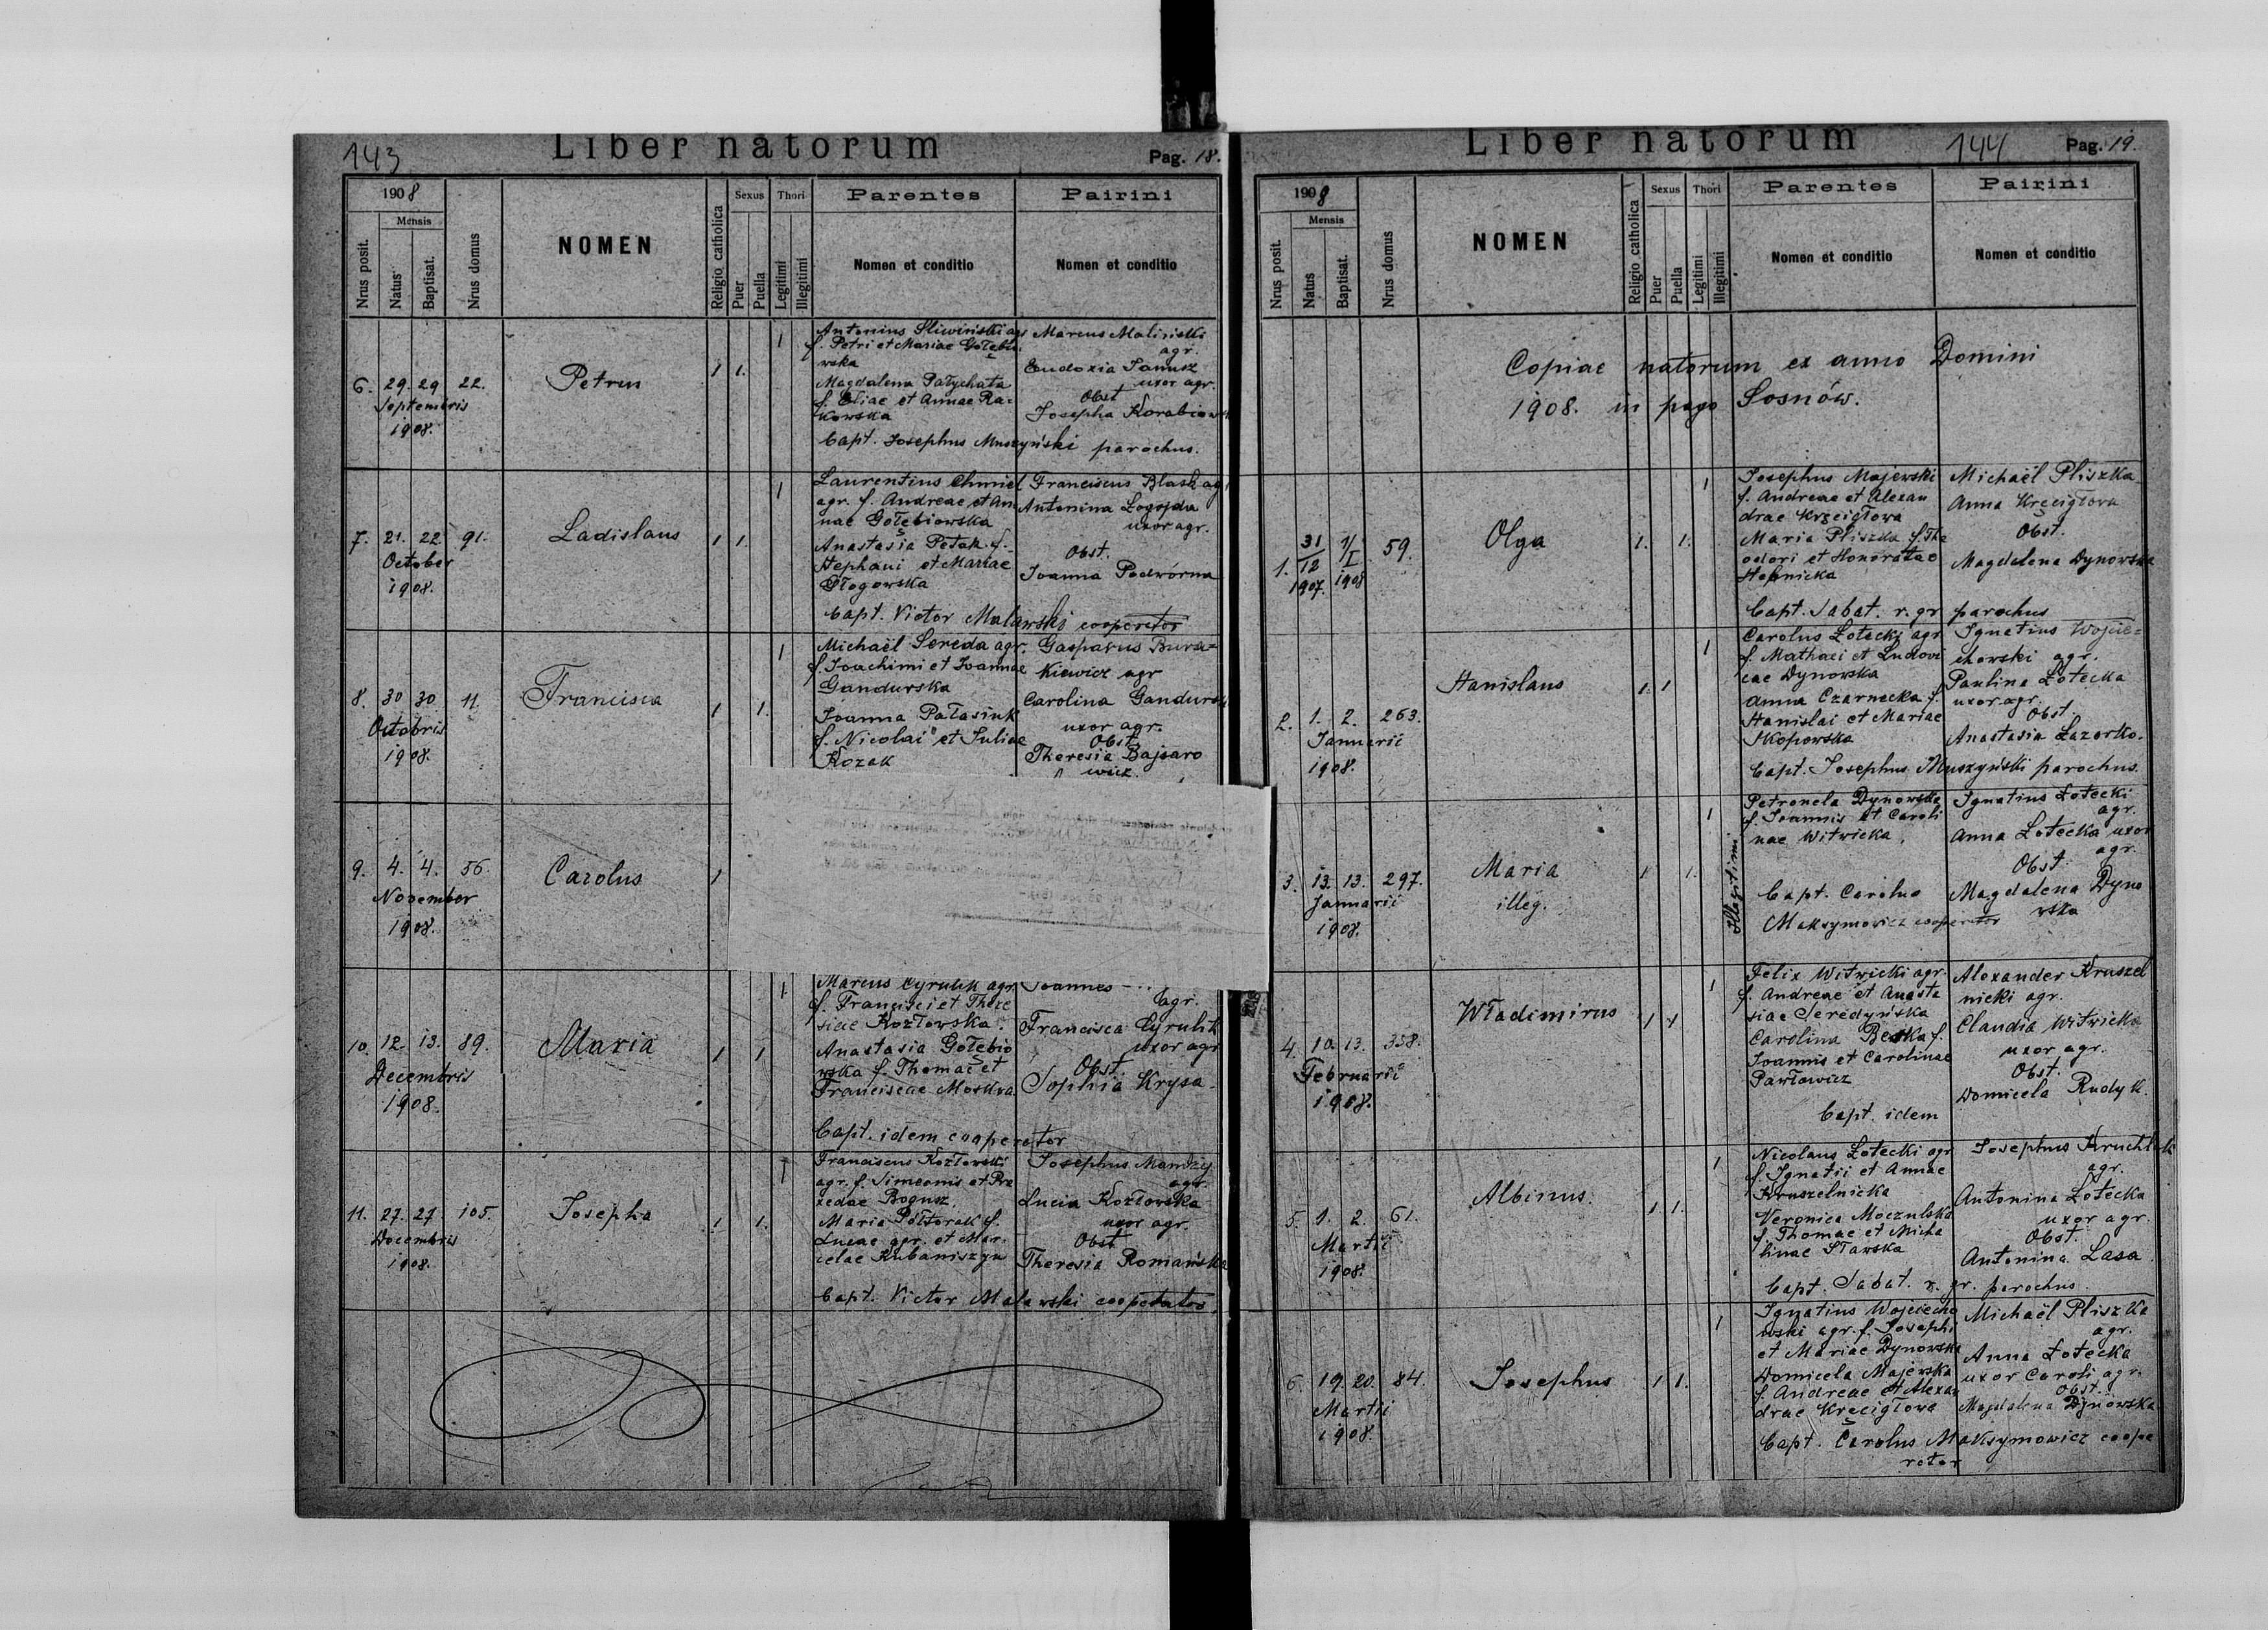 143
Liber natorum
Pag. 18.
1908
Nrus posit.
Mensis
Natus
Baptisat.
Nrus domus
NOMEN
Religio catholica
Sexus
Puer
Puella
Thori
Legitimi
Illegitimi
Parentes
Nomen et conditio
Pairini
Nomen et conditio
6. 29. 29 22.
Septembris
1908.
Petrus
1 1. 1
Antonius Sliwiński agr
f. Petri et Mariae Gołębio
wska
Magdalena Pałychata
f. Eliae et Annae Ra-
kowska
Marcus Maliński
agr.
Eudoxia Janusz
uxor agr.
Obst
Josepha Korabiow
Bapt. Josephus Muszyński parochus.
7. 21. 22. 91.
October
1908.
Ladislaus
1 1. 1
Laurentius Chmiel
agr. f. Andreae et An
nae Gołębiowska
Anastasia Petak f.
Stephani et Mariae
Głogowska
Franciscus Blask agr
Antonina Łogojda
uxor agr.
Obst.
Joanna Podwórna
Bapt. Victor Malawski cooperator
8. 30 30. 11.
Octobris
1908.
Francisca
1 1. 1
Michaël Sereda agr.
f. Joachimi et Joannae
Gandurska
Joanna Pałasiuk
f. Nicolai et Juliae
Kozak
Gasparus Bura=
kiewicz agr
Carolina Gandursk
uxor agr.
Obst
Theresia Bajsaro
wicz.
9. 4. 4. 56.
November
1908.
Carolus
1
10. 12. 13. 89.
Decembris
1908.
Maria
1 1 1.
Marcus Cyrulik agr
f. Francisci et There
siae Kozłowska.
Anastasia Gołębio
wska f. Thomae et
Franciscae Moskwa
Joannes
agr.
Francisca Cyrulik
uxor agr
Obst.
Sophia Krysa
Bapt. idem cooperator
11. 27. 27 105.
Decembris
1908.
Josepha
1. 1. 1
Franciscus Kozłowski
agr. f. Simeonis et Pra
xedae Bogusz.
Maria Półtorak f.
Lucae agr. et Mar-
celae Kubaniszyn
Josephus Mandzij
agr.
Lucia Kozłowska
uxor agr.
Obst
Theresia Romańska
Bapt. Victor Malawski cooperator
Liber natorum
144
Pag. 19.
1908
Nrus posit.
Mensis
Natus
Baptisat.
Nrus domus
NOMEN
Religio catholica
Sexus
Puer
Puella
Thori
Legitimi
Illegitimi
Parentes
Nomen et conditio
Pairini
Nomen et conditio
Copiae natorum ex anno Domini
1908. in pago Sosnów.
1. 31/12 1907. 1/I 1908 59.
Olga
1. 1. 1
Josephus Majewski
f. Andreae et Alexan
drae Kręcigłowa
Maria Pliszka f. The
odori et Honoratae
Stepnicka
Michaël Pliszka
Anna Kręcigłowa
Obst.
Magdalena Dynowska
Bapt. Sabat. r. gr parochus
2. 1. 2. 263.
Januarii
1908.
Stanislaus
1. 1 1
Carolus Łotecki agr
f. Mathaei et Ludovi
cae Dynowska
Anna Czarnecka f.
Stanislai et Mariae
Skopowska
Ignatius Wojcie=
chowski agr.
Paulina Łotecka
uxor agr.
Obst.
Anastasia Łazorko.
Bapt. Josephus Muszyński parochus.
3. 13. 13. 297.
Januarii
1908.
Maria
illeg.
1 1. 1
Illegitimi
Petronela Dynowska
f. Joannis et Caroli
nae Witwicka,
Ignatius Łotecki
agr.
Anna Łotecka uxor
agr.
Obst.
Magdalena Dyno
wska
Bapt. Carolus
Maksymowicz cooperator
4. 10. 13. 358.
Februarii
1908.
Władimirus
1 1 1
Felix Witwicki agr.
f. Andreae et Anasta
siae Seredyńska
Carolina Beska f.
Joannis et Carolinae
Pawłowicz
Alexander Kruszel
nicki agr.
Claudia Witwicka
uxor agr.
Obst.
Domicela Rudyk.
Bapt. idem
5. 1. 2. 61.
Martii
1908.
Albinus.
1 1. 1
Nicolaus Łotecki agr
f. Ignatii et Annae
Kruszelnicka
Veronica Moczulska
f. Thomae et Micha
linae Sławska
Josephus Kruchl
agr.
Antonina Łotecka
uxor agr.
Obst.
Antonina Lasa
Bapt. Sabat. r. gr. parochus
6. 19. 20. 84.
Martii
1908.
Josephus
1 1. 1
Ignatius Wojciecho
wski agr. f. Josephi
et Mariae Dynowska
Domicela Majewska
f. Andreae et Alexan
drae Kręcigłowa
Michaël Pliszka
agr.
Anna Łotecka
uxor Caroli agr.
Obst.
Magdalena Dynowska
Bapt. Carolus Maksymowicz coope
rator